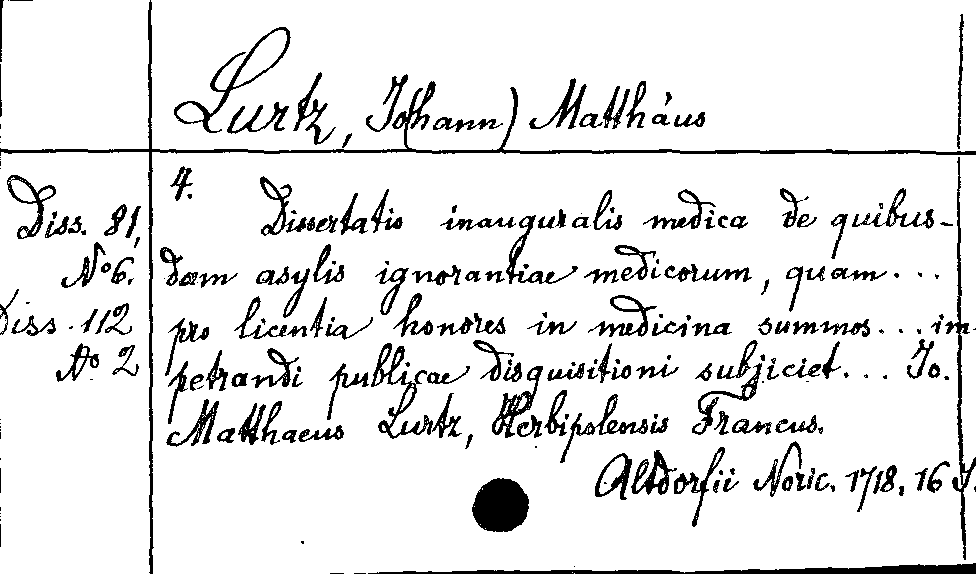 Lurtz, Jo(hann) Matthäus
4.
Diss. 81,
No 6.
Diss. 112
No 2
Dissertatio inauguralis medica de quibus-
dam asylis ignorantiae medicorum, quam...
pro licentia honores in medicina summos... im-
petrandi publicae disquisitioni subjiciet... Jo.
Matthaeus Lurtz, Herbipolensis Francus.
Altdorfii Noric. 1718. 16 S.